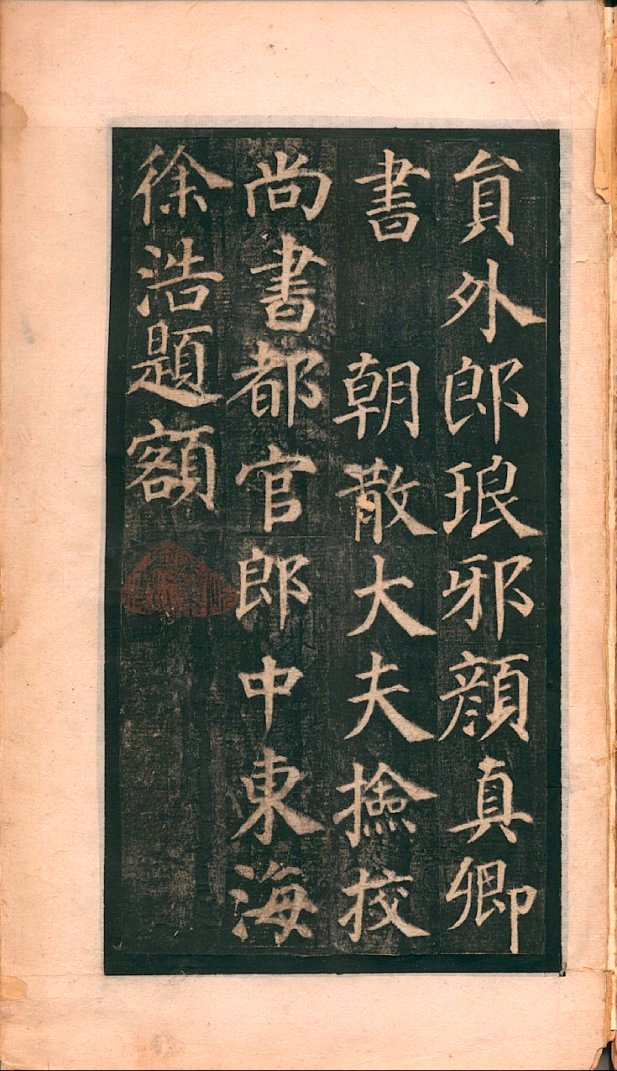 貟外郎琅邪顏真卿
書　朝散大夫撿挍
尚書都官郎中東海
徐浩題額